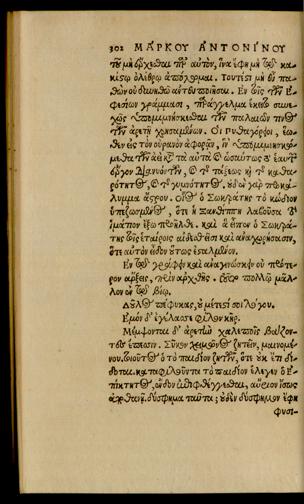 302 ΜΑΡΚΟΥ ΑΝΤΟΝΙΝΟΥ
τοῦ μὴ ἔρχεσθαι πρὸς αὐτὸν, ἵνα ἔφη μὴ τῷ κα-
κίστῳ ὀλέθρῳ ἀπόλωμαι. Τουτέστι μὴ εὖ πα-
θὼν οὐ δυνηθῶ ἀντευποιῆσαι. Ἐν τοῖς τῶν Ἐ-
φεσίων γράμμασι, παράγγελμα ἔκειτο συνε-
χῶς ὑπομιμνήσκεσθαι τῶν παλαιῶν τινὸς
τῶν ἀρετῇ χρησαμένων. Οἱ Πυθαγόρειοι, ἕω-
θεν εἰς τὸν οὐρανὸν ἀφορᾷν, ἵν᾽ ὑπομιμνησκώ-
μεθα τῶν ἀεὶ κατὰ τὰ αὐτὰ καὶ ὡσαύτως τὸ ἑαυτῶν
ἔργον διανυόντων, καὶ τῆς τάξεως καὶ τῆς καθα-
ρότητος, καὶ τῆς γυμνότητος, οὐδὲν γὰρ προκά-
λυμμα ἄστρου. Οἷος ὁ Σωκράτης τὸ κώδιον
ὑπεζωσμένος, ὅτε ἡ Ξανθίππη λαβοῦσα τὸ
ἱμάτιον ἔξω προῆλθε. καὶ ἃ εἶπεν ὁ Σωκρά-
της τοῖς ἑταίροις αἰδεσθεῖσι καὶ ἀναχωρήσασιν,
ὅτε αὐτὸν εἶδον οὕτως ἐσταλμένον.
Ἐν τῷ γράφειν καὶ ἀναγινώσκειν οὐ πρότε-
ρον ἄρξεις, πρὶν ἀρχθῇς. τοῦτο πολλῷ μᾶλ-
λον ἐν τῷ βίῳ.
Δοῦλος πέφυκας, οὐ μέτεστί σοι λόγου.
Ἐμὸν δ᾽ ἐγέλασσε φίλον κῆρ.
Μέμψονται δ᾽ ἀρετὴν χαλεποῖς βάζον-
τες ἔπεσσιν. Σῦκον χειμῶνος ζητεῖν, μαινομέ-
νου. τοιοῦτος ὁ τὸ παιδίον ζητῶν, ὅτε οὐκ ἔτι δί-
δοται. καταφιλοῦντα τὸ παιδίον ἔλεγεν ὁ Ἐ-
πίκτητος, ἔνδον ἐπιφθέγγεσθαι, αὔριον ἴσως
ἀποθανῇ. δύσφημα ταῦτα; οὐδὲν δύσφημον ἔφη
φυσι-